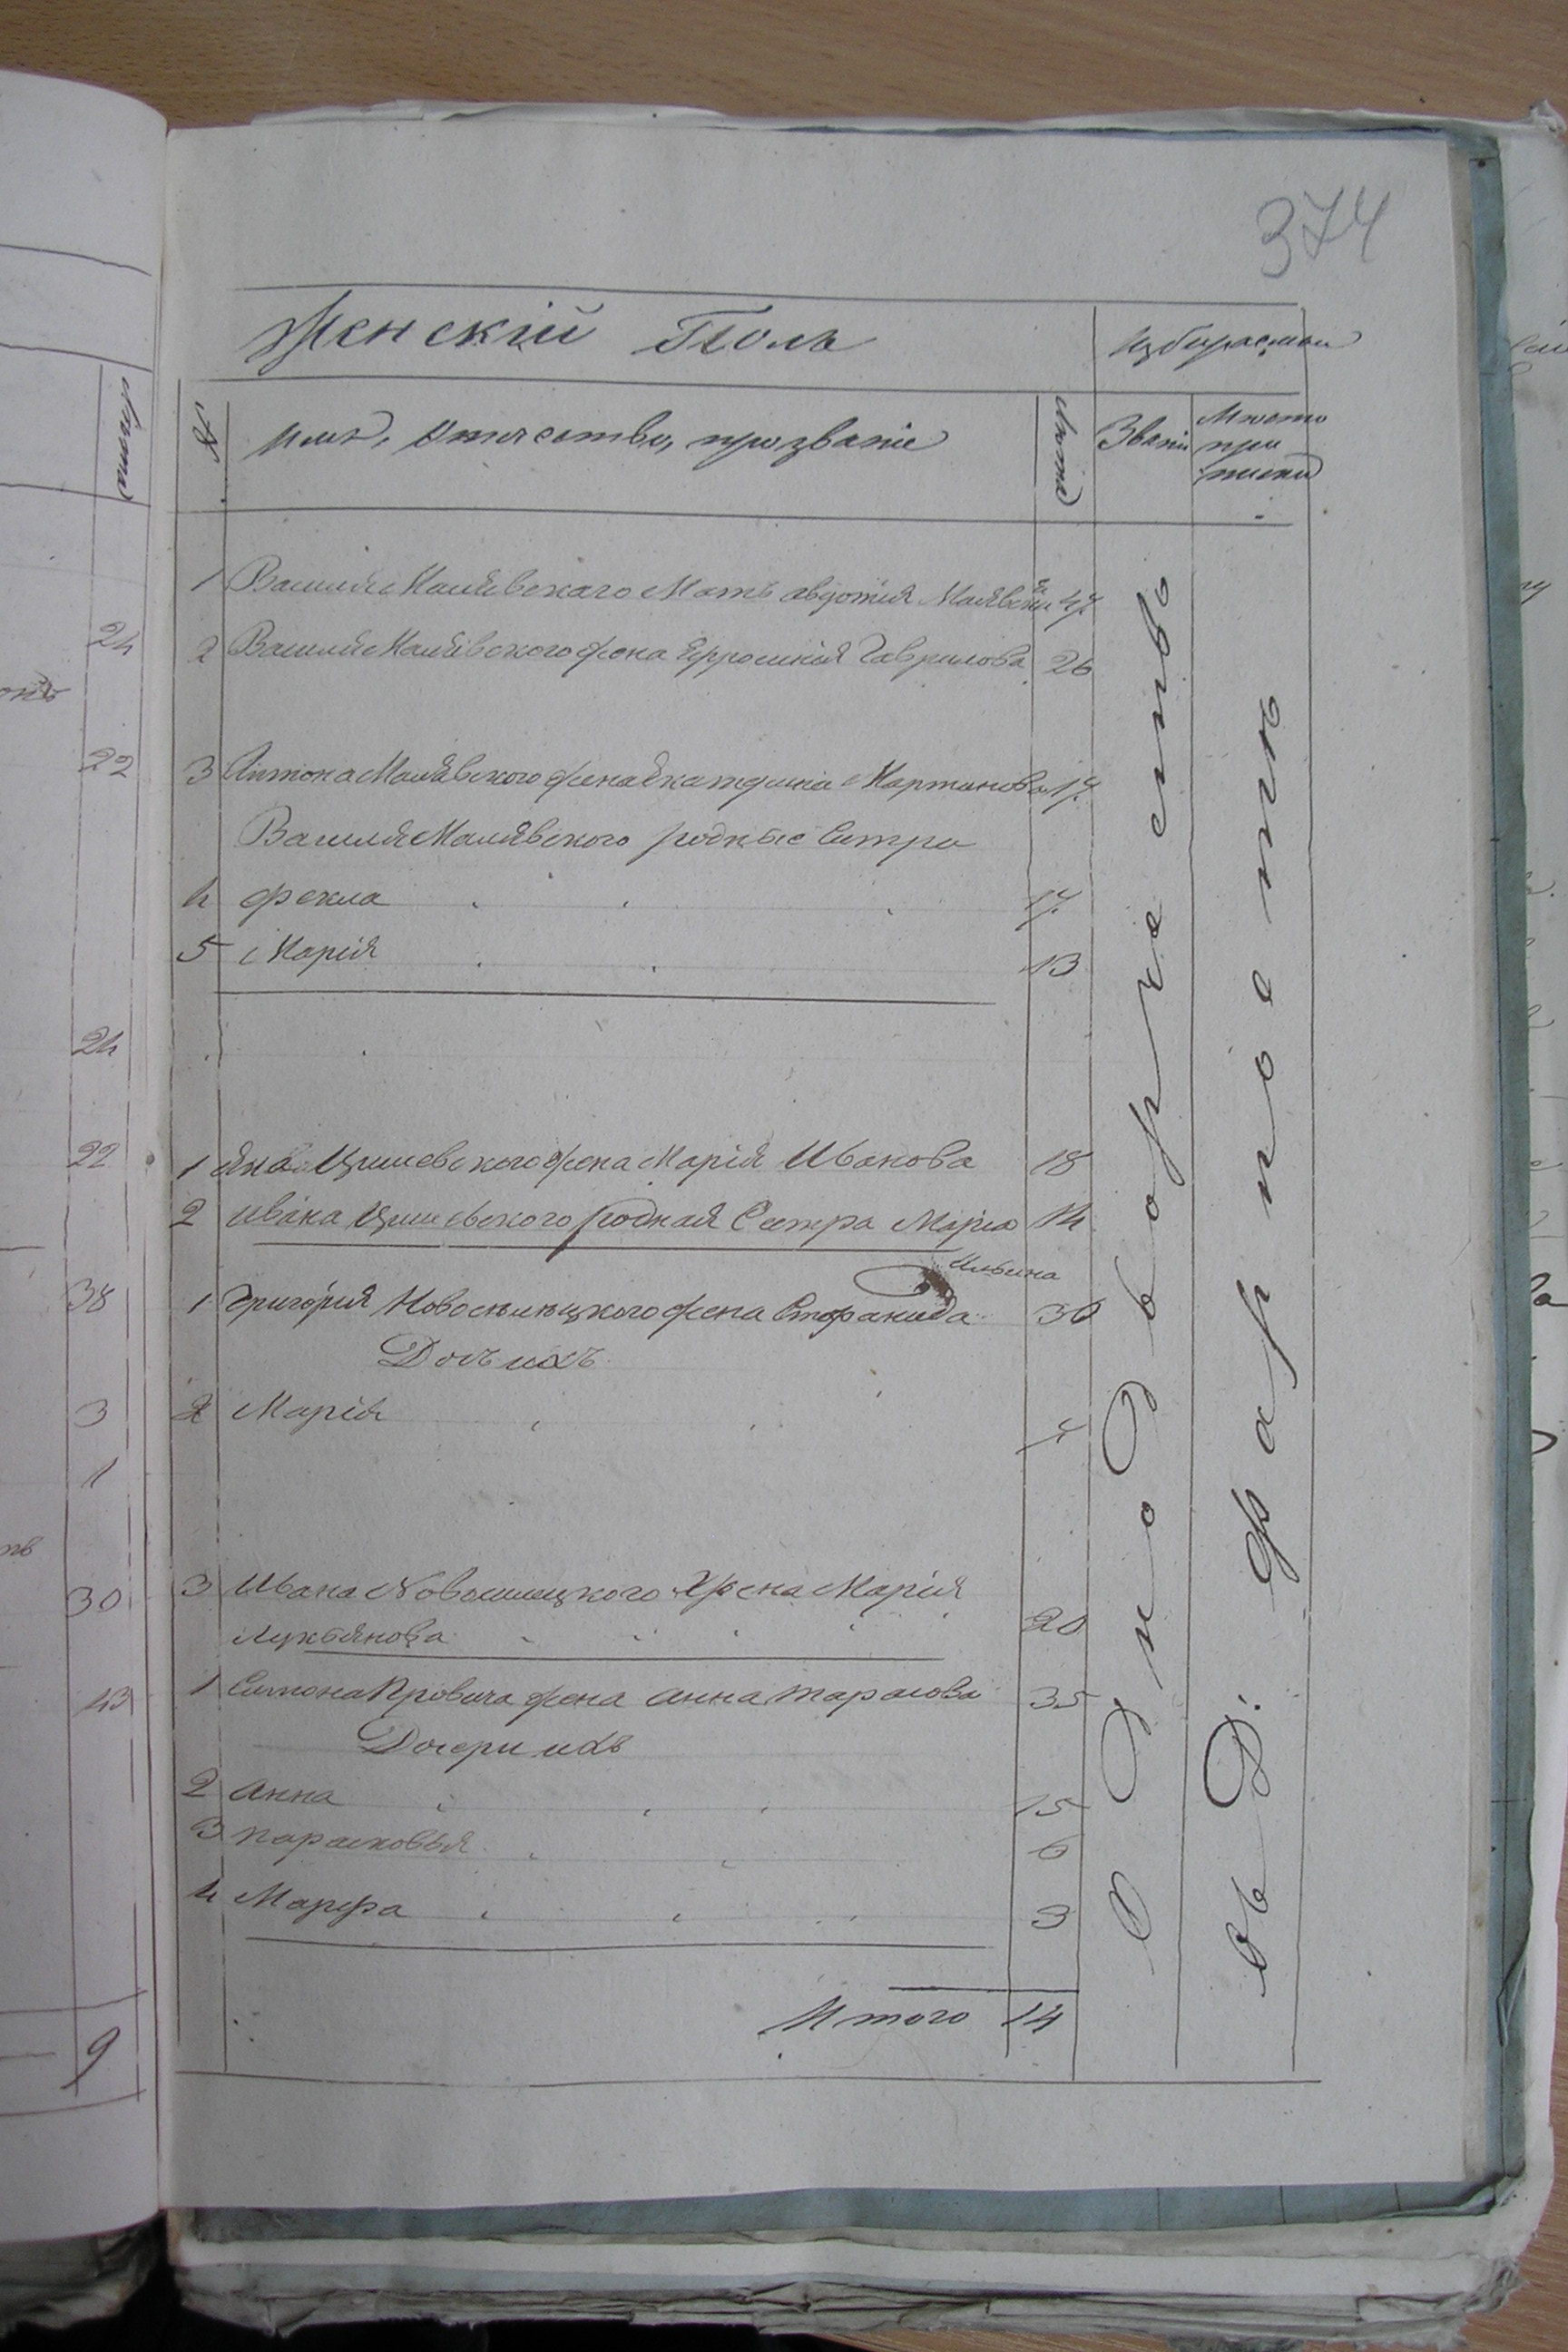 374
Женскій Полъ
избираемыи
№
Имя, Отечество, прозваніе
Лѣта
Званіе
Мѣсто при писки
1 Василія Малявскаго Мать авдотія Малявская 47
2 Василія Малявского жена Ефросинія Гаврилова 26
3 Антона Малявского жена Екатерина Мартинова 17
Василія Малявского родные Сестри
4 Фекла 17
5 Марія 13
1 Яна Цишевского жена Марія Иванова 18
2 Ивана Цишевского родная Сестра Маріа 14
Ильина
1 Григорія Новосѣлецкого жена Стефанида 30
Дочь ихъ
2 Марія 4
3 Ивана Новоселецкого Жена Марія
Лукьянова 20
1 Симона Кровича жена анна тарасова 35
Дочери ихъ
2 Анна 15
3 парасковья 6
4 Марфа 3
Итого 14
Однодворчество
въ Д.
24
22
24
22
38
3
1
30
43
9